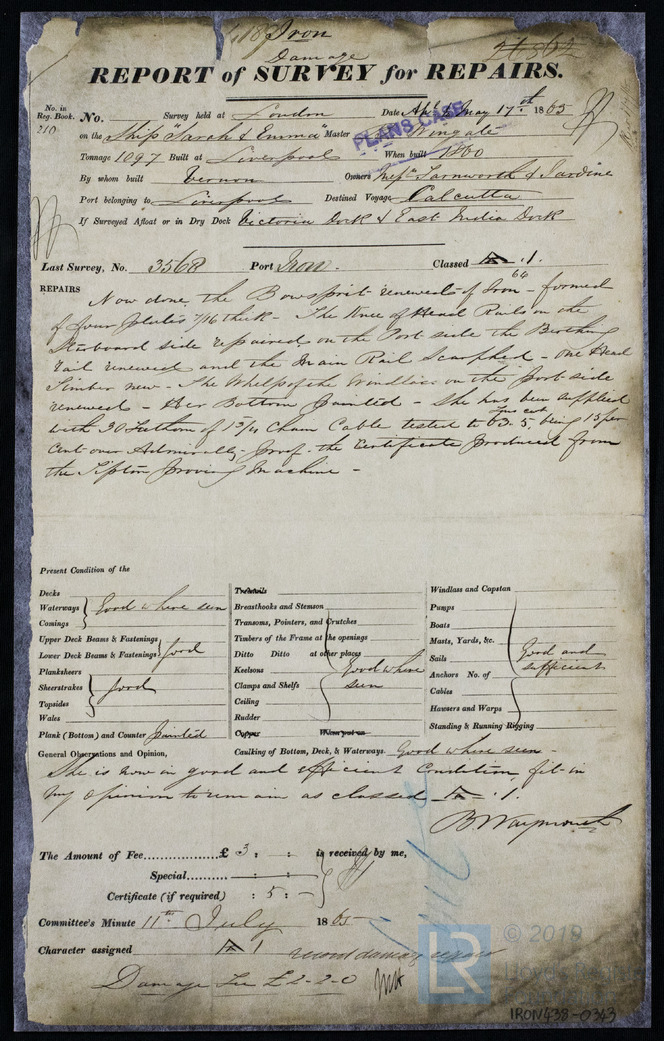 Iron
Damage
REPORT of SURVEY for REPAIRS.
No. in Reg. Book. 210
No. Survey held at London Date Apl & May 17th 1865
PLANS CASE
on the Ship "Sarah & Emma" Master Wingate
Tonnage 1097 Built at Liverpool When built 1860
By whom built Vernon Owners Messrs Farnworth & Jardine
Port belonging to Liverpool Destined Voyage Calcutta
If Surveyed Afloat or in Dry Dock Victoria Dock & East India Dock
Last Survey, No. 3568 Port Iron. Classed A .1.
REPAIRS
Now done, the Bowsprit renewed of Iron - formed
of four plates 7/16 thick - The Knee of Head Rails on the
Starboard side repaired, on the Port side the Berthing
rail renewed and the Main Rail Scarphed - One Head
Timber new - The Whelps of the Windlass on the port side
renewed - Her Bottom painted - She has been supplied
with 30 Fathom of Chain Cable tested to being 15 per
Cent over Admiralty proof. the Certificate produced from
the Tipton proving Machine -
Present Condition of the
Decks
Waterways
Comings
Good where seen
Upper Deck Beams & Fastenings
Lower Deck Beams & Fastenings
Good
Planksheers
Sheerstrakes
Topsides
Wales
Good
Plank (Bottom) and Counter painted
Treenails
Breasthooks and Stemson
Transoms, Pointers, and Crutches
Timbers of the Frame at the openings
Ditto Ditto at other places
Keelsons
Clamps and Shelfs
Ceiling
Rudder
Good where seen
Copper When put on
Windlass and Capstan
Pumps
Boats
Masts, Yards, &c.
Sails
Anchors No. of
Cables
Hawsers and Warps
Standing & Running Rigging
Good and sufficient
General Observations and Opinion, Caulking of Bottom, Deck, & Waterways. Good where seen -
She is now in good and efficient Condition, fit in
my opinion to remain as classed A .1.
B. Waymouth
The Amount of Fee £ 3 : - : - is received by me,
Special : - : -
Certificate (if required) : 5 : -
Committee's Minute 11th July 1865
Character assigned A 1
record damage repairs
Damage Fee £2-2-0
LR
© 2019
IRON438-0343